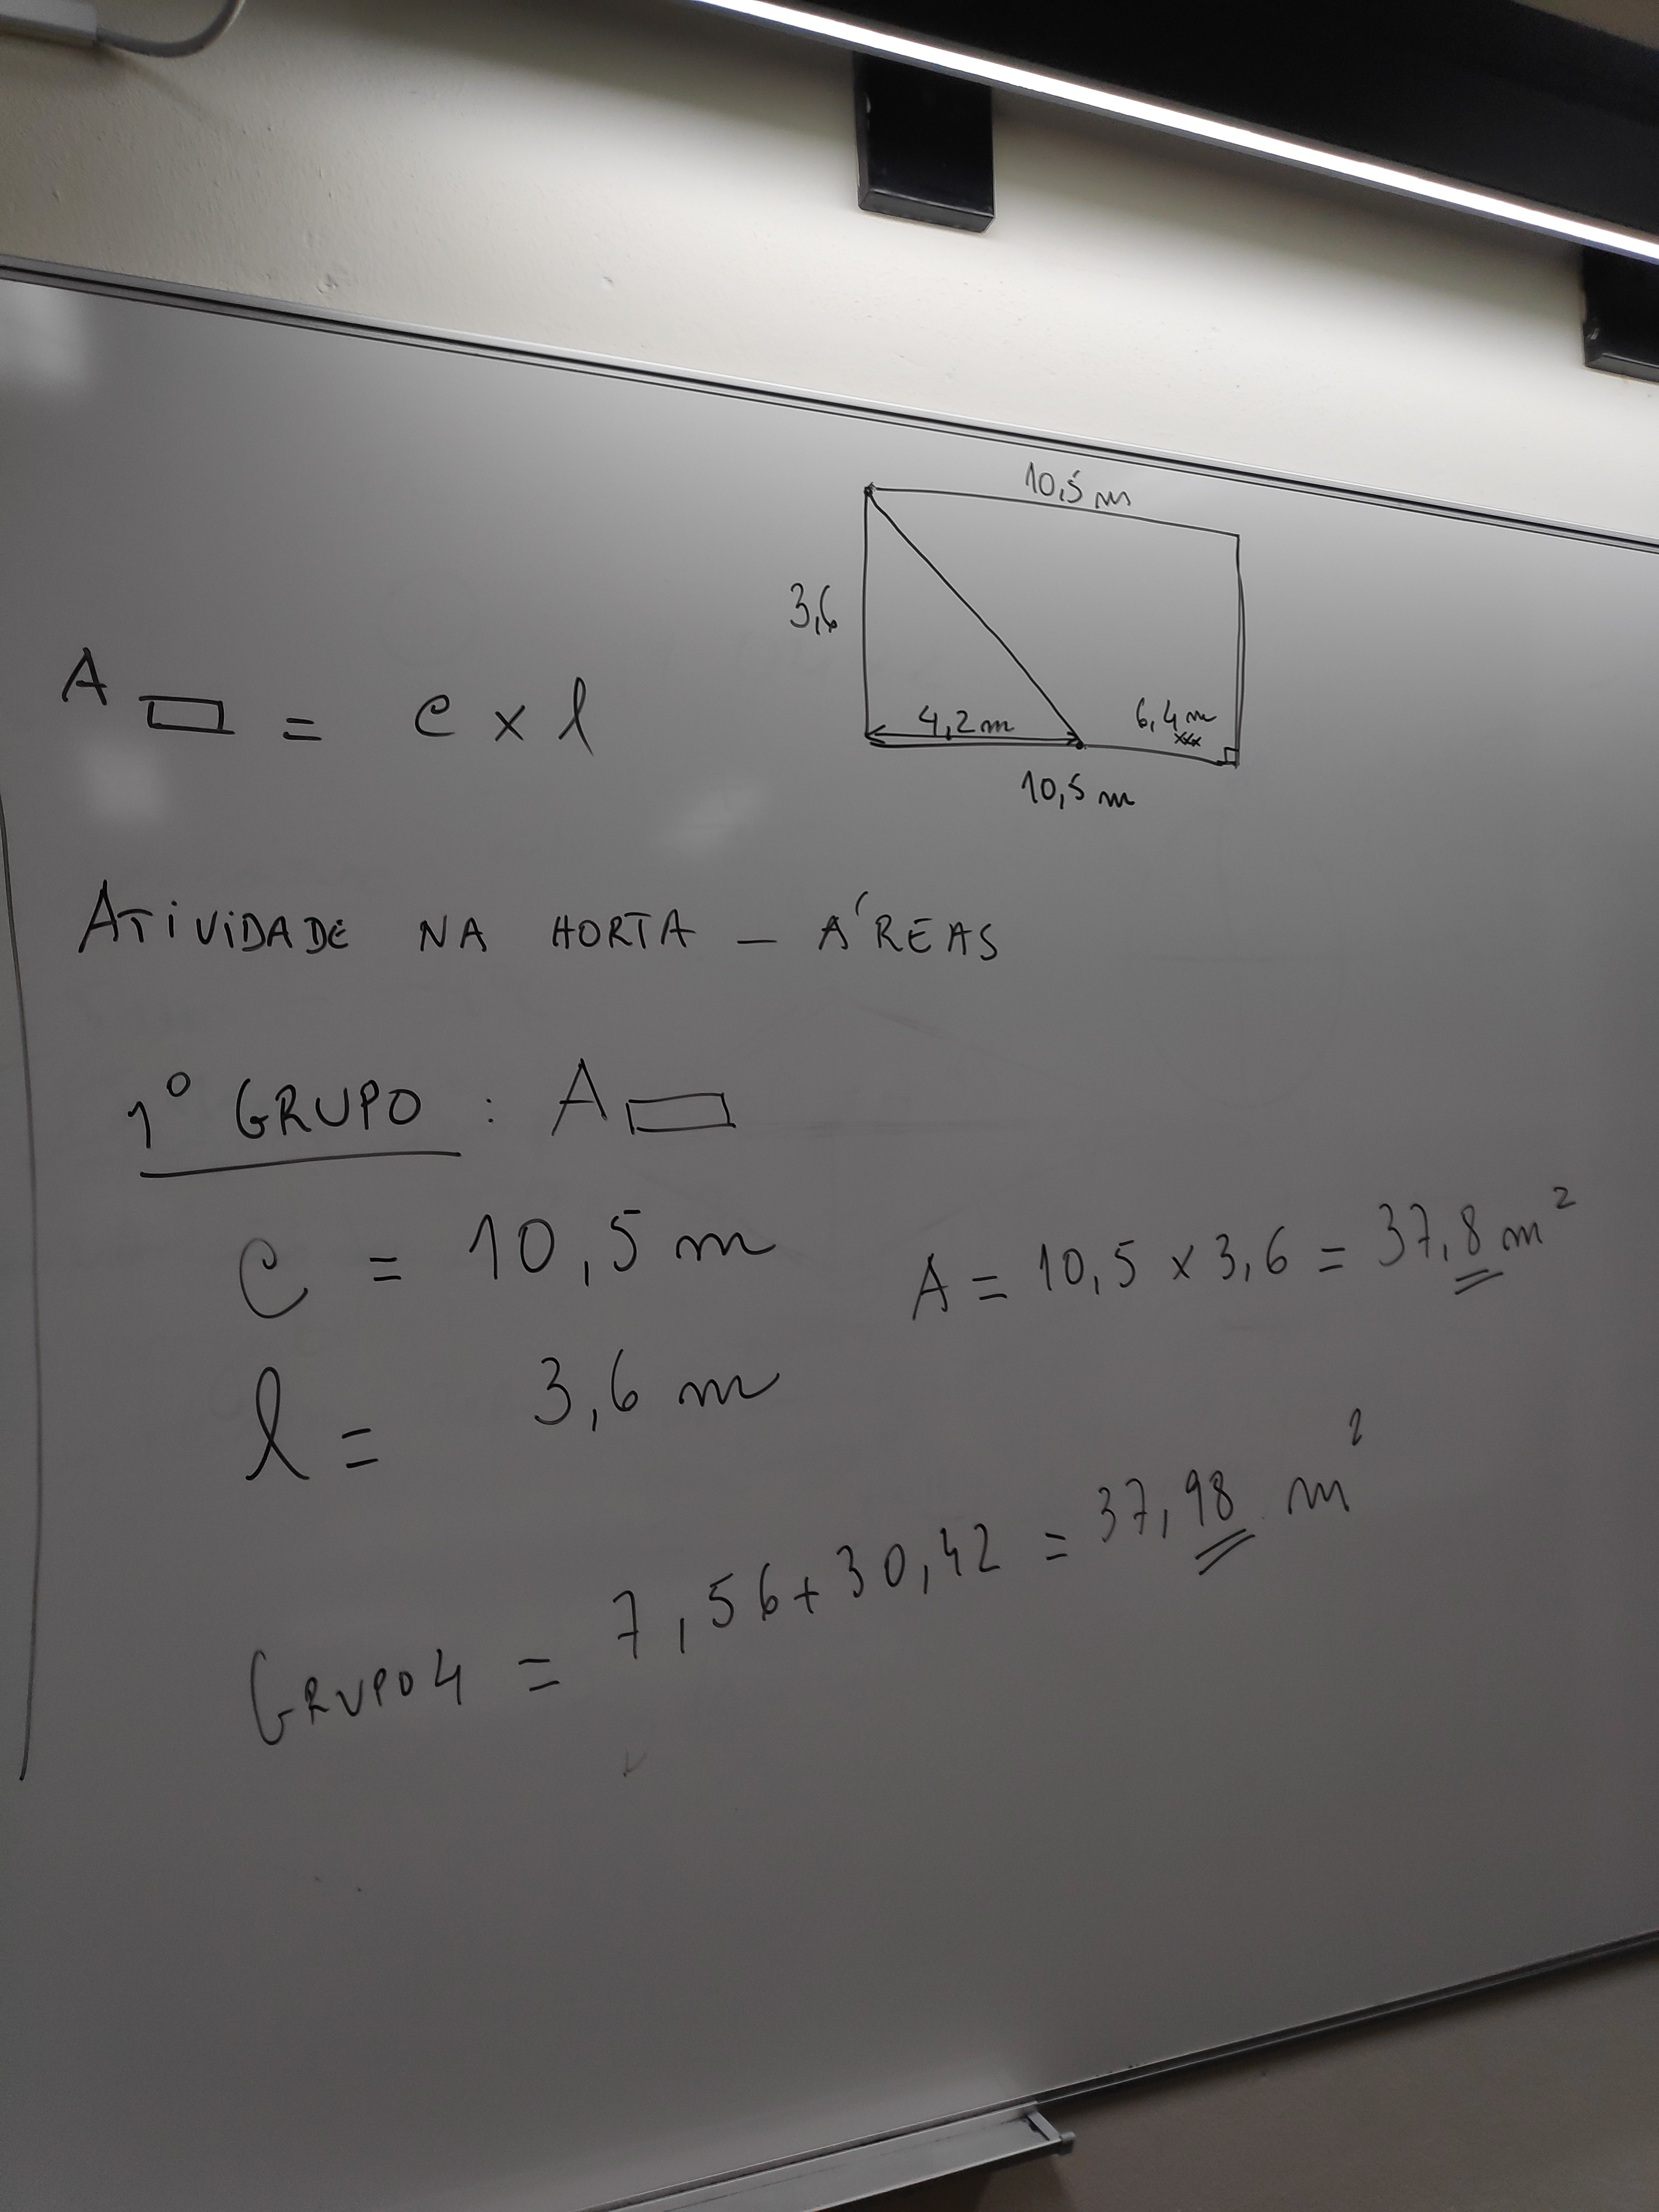 10,5 m
3,6
4,2 m
6,4 m
10,5 m
A = c x l
ATIVIDADE NA HORTA – ÁREAS
1º GRUPO : A
c = 10,5 m
A = 10,5 x 3,6 = 37,8 m²
l = 3,6 m
GRUPO 4 = 7,56 + 30,42 = 37,98 m²